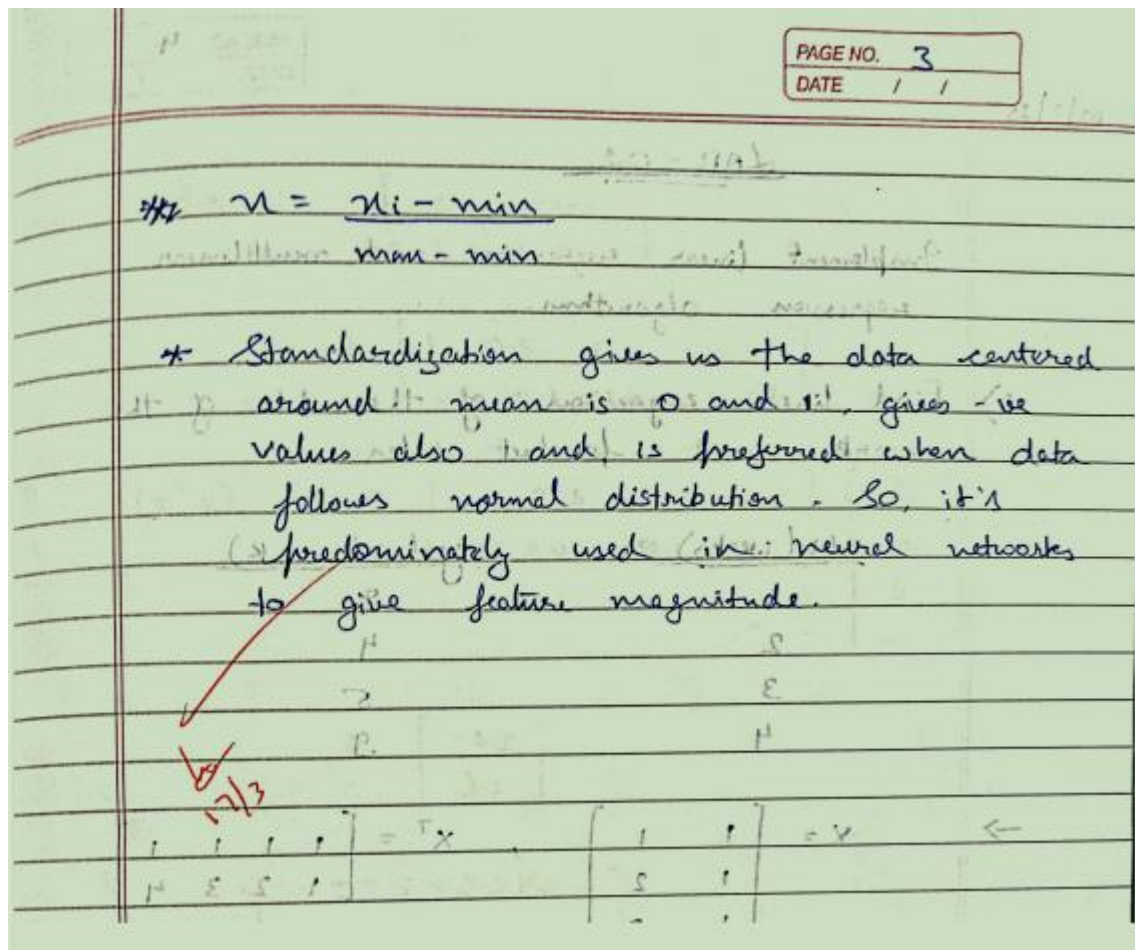 PAGE NO. 3
DATE / /
x = xi - min
max - min
* Standardization gives us the data centered
around mean is 0 and 1, gives -ive
values also and is preferred when data
follows normal distribution. So, it's
predominately used in neural networks
to give feature magnitude.
17/3